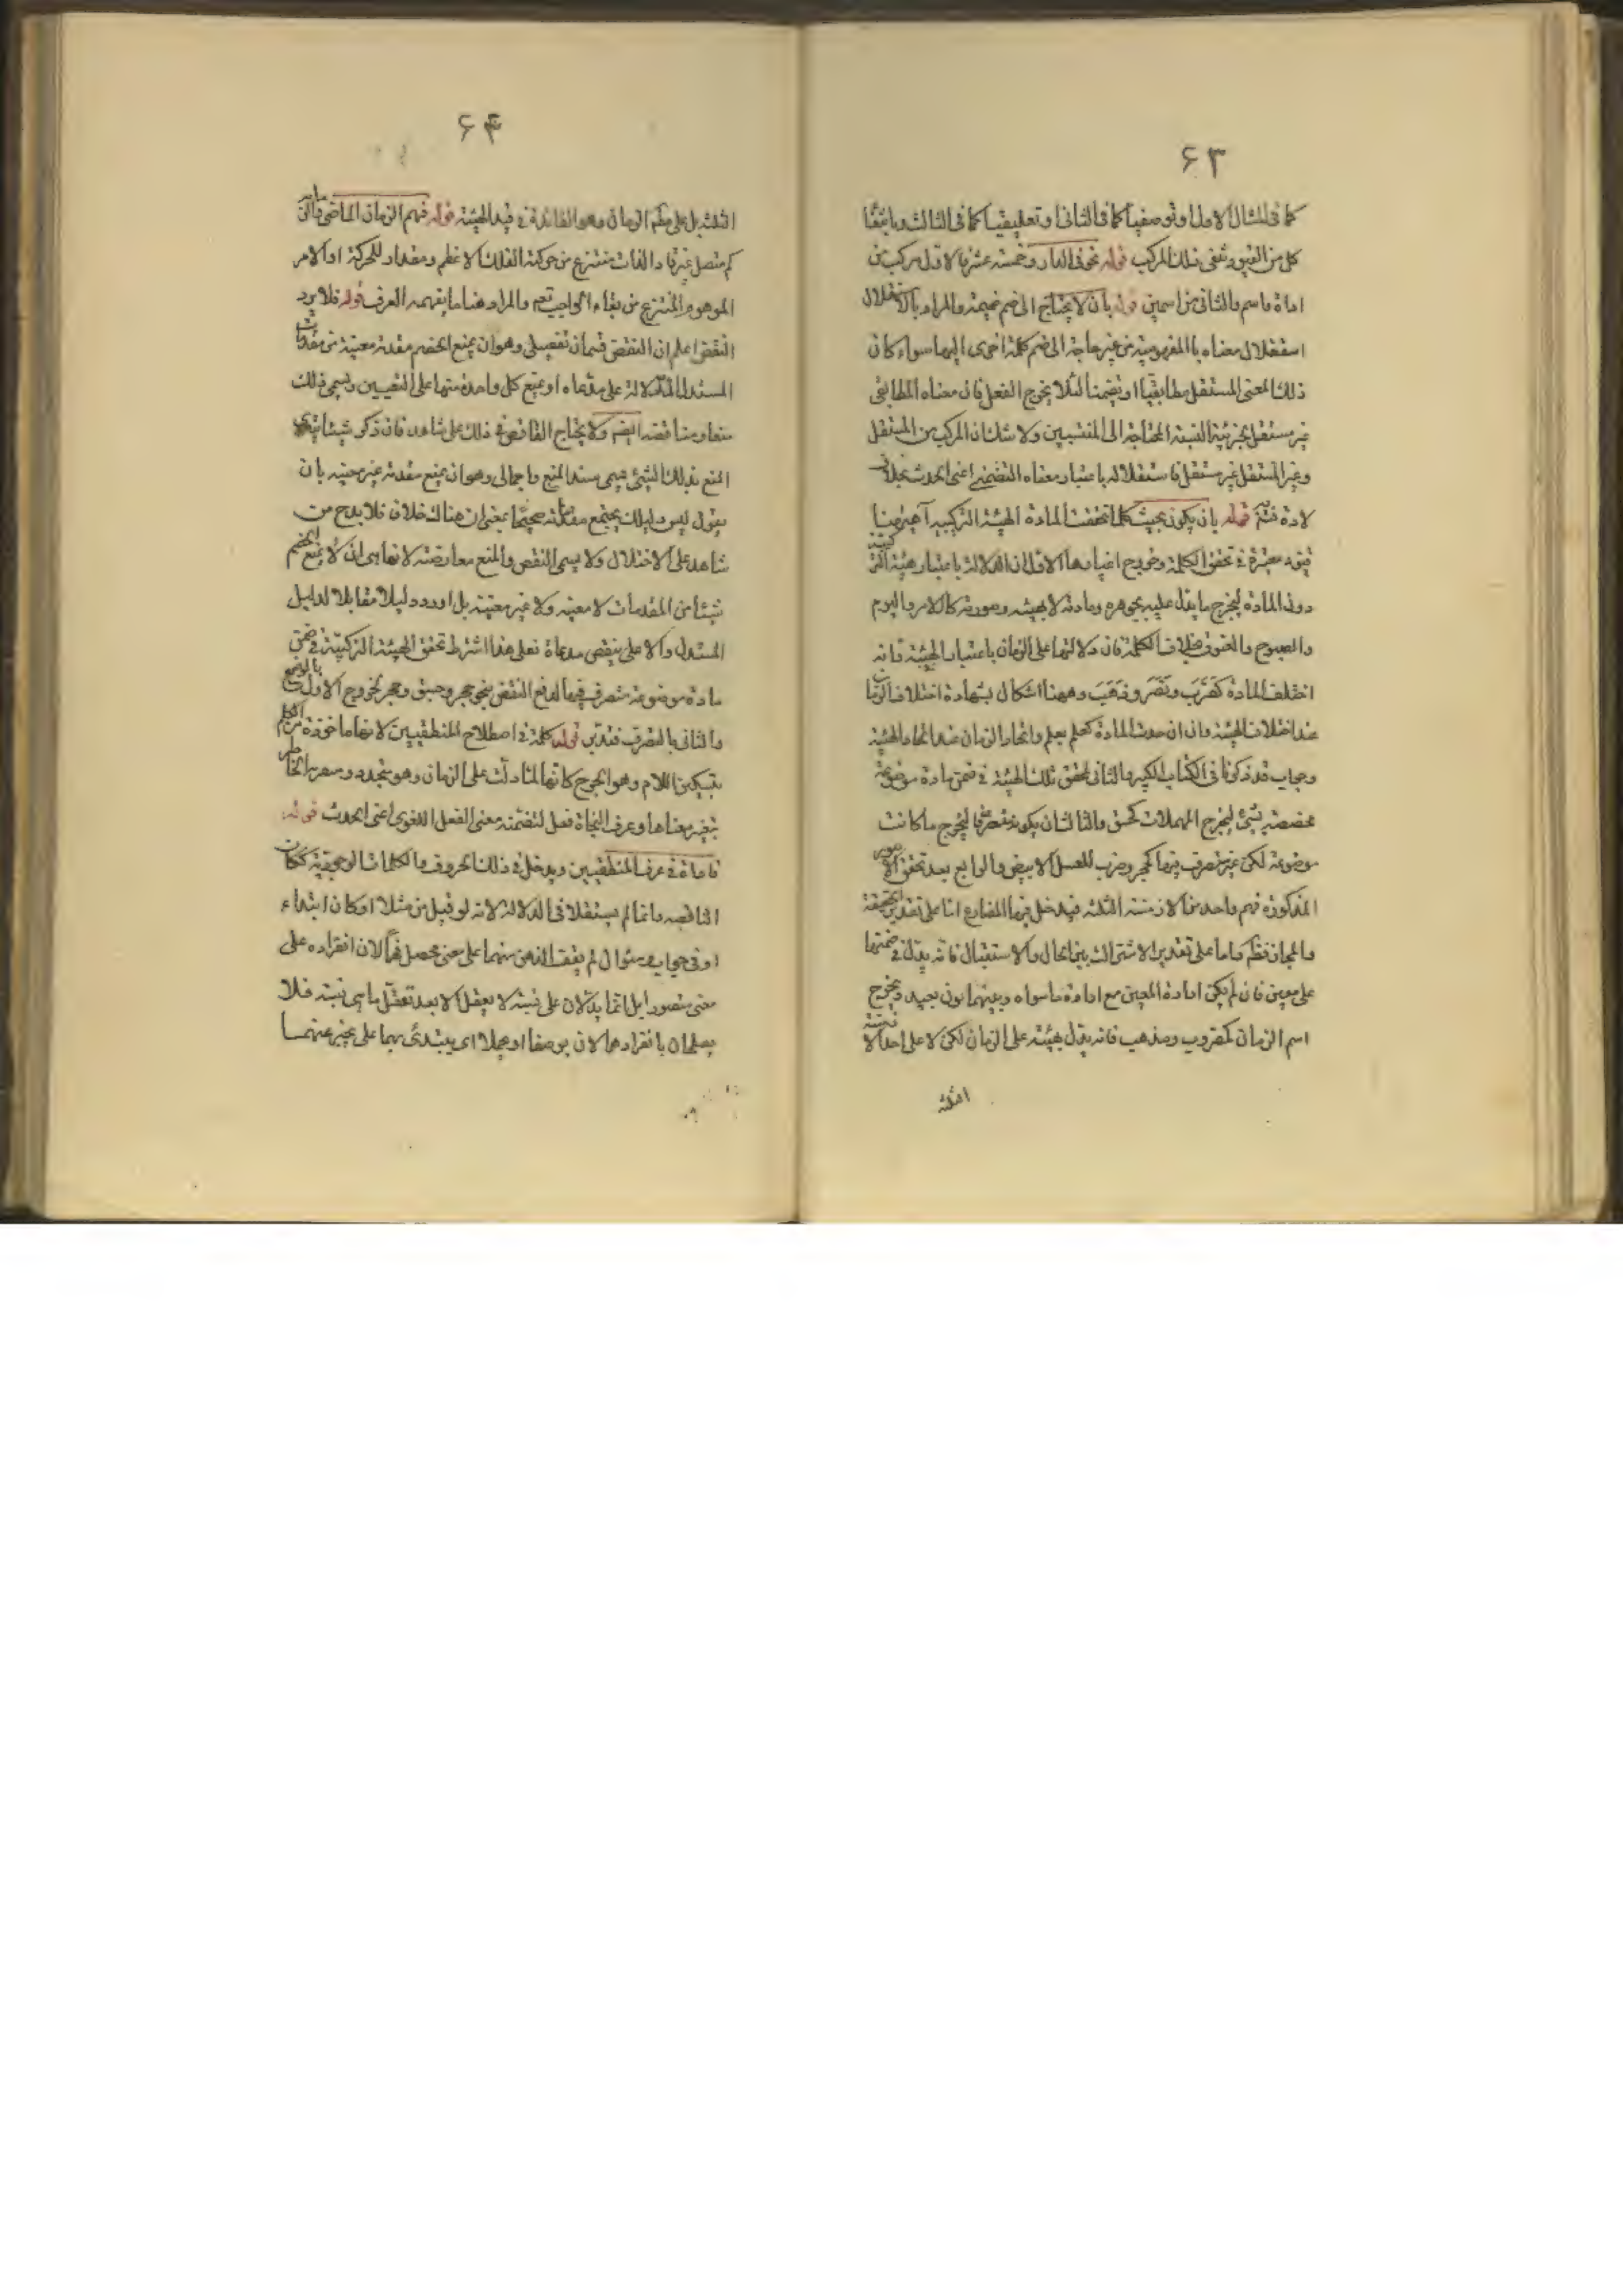 ۶۳
كما فى المثال الاول او توصفيا كما فى الثانى او تعليقيا كما فى الثالث وبانتفا
كل من القيود ينفى ذلك المركب قوله نحو فى الدار وخمسة عشر فالاول مركب من
اداة واسم والثانى من اسمين قوله بان لا يحتاج الى ضم ضميمة والمراد بالاستقلال
استقلال معناه بالمفهومية من غير حاجة الى ضم كلمة اخرى اليها سواء كان
ذلك المعنى المستقل مطابقيا او تضمنا لئلا يخرج الفعل فان معناه المطابقى
غير مستقل لجزئية النسبة المحتاجة الى المنتسبين ولا شك ان المركب من المستقل
وغير المستقل غير مستقل فاستقلاله باعتبار معناه التضمنى اعنى الحدث بخلاف
لاداة فتم قوله بان يكون بحيث كلما تحققت المادة الهيئة التركيبية آه هيهنا
قيود معتبرة فى تحقق الكلمة وخروج اغيارها الاول ان الدلالة باعتبار هيئة التركيبية
دون المادة ليخرج ما يدل عليه بجوهره ومادته لا بهيئته وصورته كالامس واليوم
والصبوح والغبوق بخلاف الكلمة فان دلالتها على الزمان باعتبار الهيئة فانه
اختلف المادة كضرب ونصر وذهب وههنا اشكال بشهادة اختلاف الزما
عند اختلاف الهيئة وان اتحدت المادة كعلم يعلم واتحاد الزمان عند اتحاد الهيئة
وجوابه قد ذكرنا فى الكتاب الكبير والثانى تحقق تلك الهيئة فى ضمن مادة موضوعة
مخصصة بشئ ليخرج المهملات كجسق والثالث ان يكون متصرفا ليخرج ما كانت
موضوعة لكن غير متصرف فيها كحجر وضرب للعسل الابيض والرابع بعد تحقق الامور
المذكورة فهم واحد من الازمنة الثلثة فيدخل فيها المضارع اما على تقدير الحقيقة
والمجاز فظم واما على تقدير الاشتراك بين الحال والاستقبال فانه يدل فى ضمنها
على معين فان لم يكن ارادة المعين مع ارادة ما سواه وبينهما بون بعيد ويخرج
اسم الزمان كمضروب ومذهب فانه يدل بهيئته على الزمان لكن لا على احد الازمنة
الثلثة
۶۴
الثلثة بل على مطم الزمان وهو الفائدة فى قيد الهيئة قوله فهم الزمان الماضى
كم متصل غير قار الذات منتزع من حركة الفلك الاعظم ومقدار للحركة او الامر
الموهوم المنتزع من بقاء الواجب تعم والمراد هنا ما يفهمه العرف قوله فلا يرد
النقض اعلم ان النقض قسمان تفصيلى وهو ان يمنع الخصم مقدمة معينة من مقدمات
المستدل الدلالة على مدعاه او يمنع كل واحدة منها على التعيين ويسمى ذلك
منعا ومناقضة ايضم ولا يحتاج الناقض فى ذلك على شاهد فان ذكر شيئا يتقوى
المنع بذلك الشئ فيسمى سند المنع واجمالى وهو ان يمنع مقدمة غير معينة بان
يقول ليس دليلك بجميع مقدماته صحيحا بمعنى ان هناك خلاف فلا بد ح من
شاهد على الاختلال ولا يسمى النقض والمنع معارضة لانها هى ان لا يمنع الخصم
شيئا من المقدمات لا معينة ولا غير معينة بل اورد دليلا مقابلا لدليل
المستدل دالا على نقض مدعاه فعلى هذا اشترط تحقق الهيئة التركيبية فى ضمن
مادة موضوعة متصرف فيها لدفع النقض بنحو حجر وجسق وحجر لخروج الاول بالوضع
والثانى بالتصرف فتدبر قوله كلمة فى اصطلاح المنطقيين لانها ماخوذة من الكلم
بتسكين اللام وهو الجرح كانها لما دلت على الزمان وهو متجدد ومتصرم الخاطر
بتغير معناها وعرف النحاة فعل لتضمنه معنى الفعل اللغوى اعنى الحدث قوله
فاداة فى عرف المنطقيين ويدخل فى ذلك الحروف والكلمات الوجودية ككان
الناقصة وانما لم يستقلا فى الدلالة لانه لو قيل من مثلا او كان ابتداء
او فى جواب سئوال لم يقف الذهن منهما على معنى محصل فهما لان انفراده على
معنى متصور ايل انما يدلان على نسبة لا يعقل الا بعد تعقل ما هى نسبة فلا
يصلحان بانفرادهما لان يوضعا او يحملا اى يبتدئ بهما على مخبر عنهما